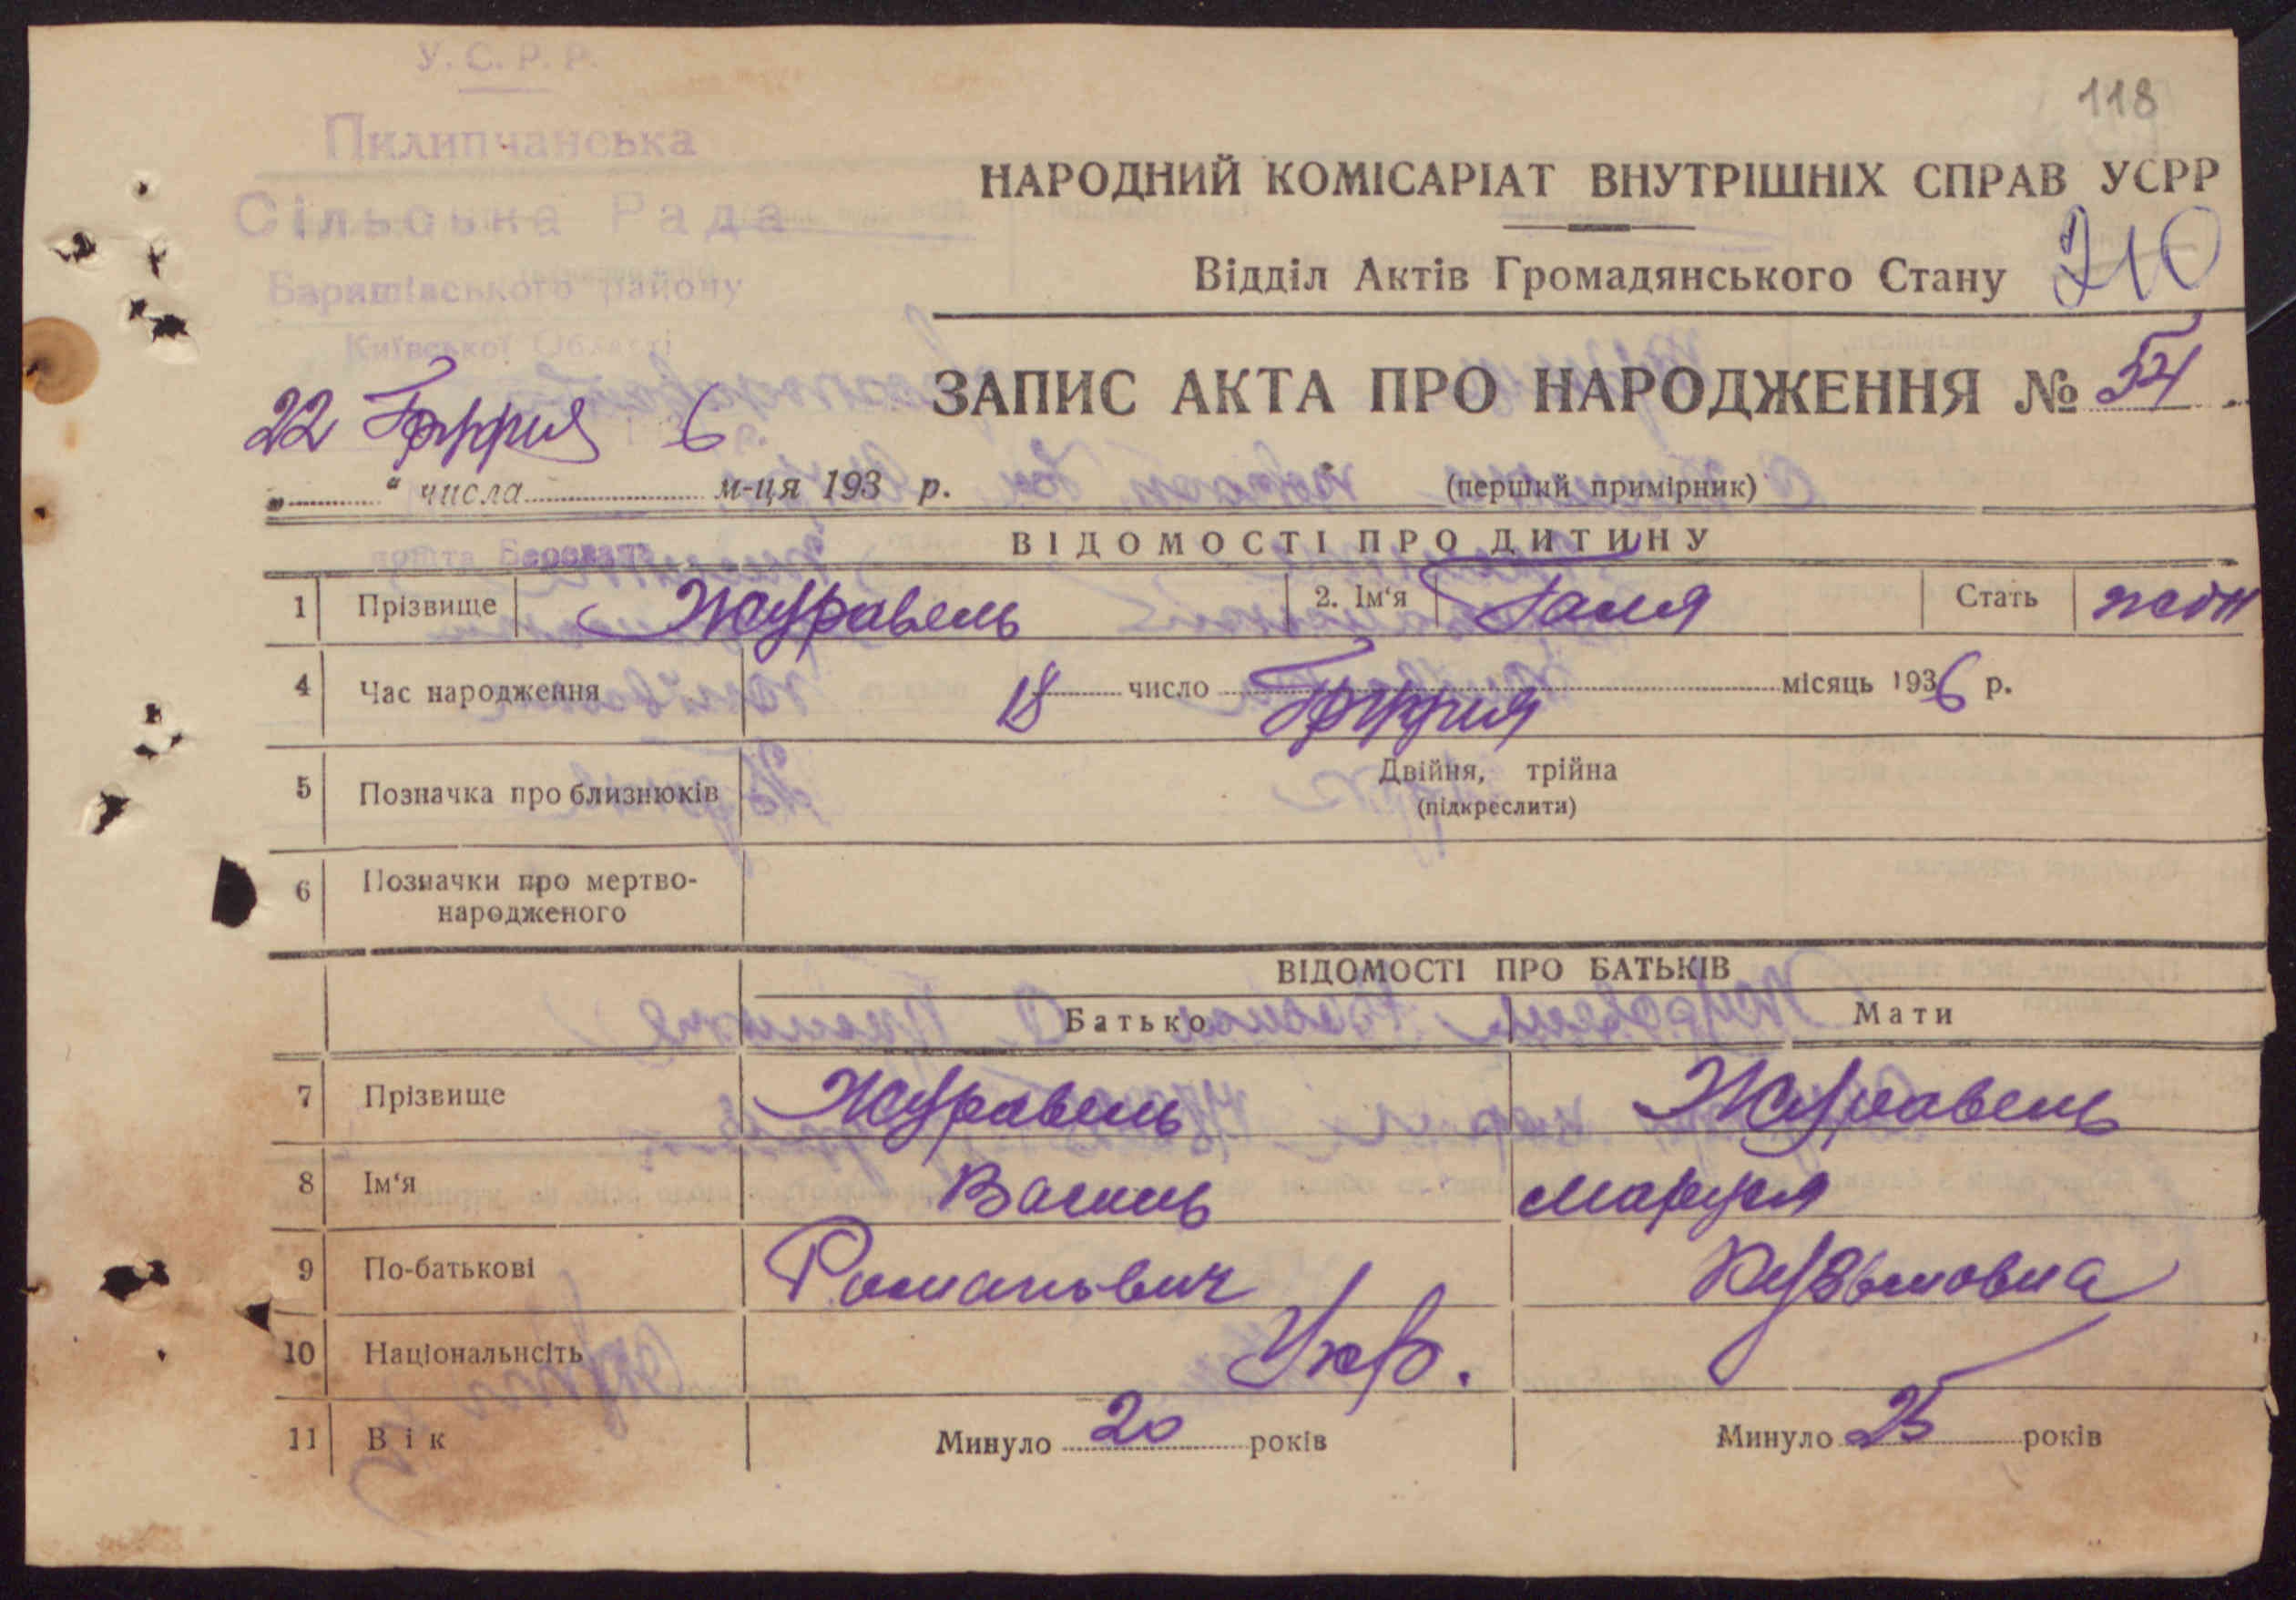 118
У.С.Р.Р.
Пилипчанська
Сільська Рада
Баришівського району
Київської Області
НАРОДНИЙ КОМІСАРІАТ ВНУТРІШНІХ СПРАВ УСРР
Відділ Актів Громадянського Стану
210
ЗАПИС АКТА ПРО НАРОДЖЕННЯ № 54
22 6
„ “ числа м-ця 193 р.
(перший примірник)
пошта
ВІДОМОСТІ ПРО ДИТИНУ
1 Прізвище Журавель 2. Ім‘я Галя Стать жін
4 Час народження 18 число місяць 1936 р.
5 Позначка про близнюків Двійня, трійна
(підкреслити)
6 Позначки про мертво-
народженого
ВІДОМОСТІ ПРО БАТЬКІВ
Батько Мати
7 Прізвище Журавель Журавель
8 Ім‘я Василь Маруся
9 По-батькові Романович Кузьмовна
10 Національнсіть Укр.
11 Вік Минуло 20 років Минуло 25 років